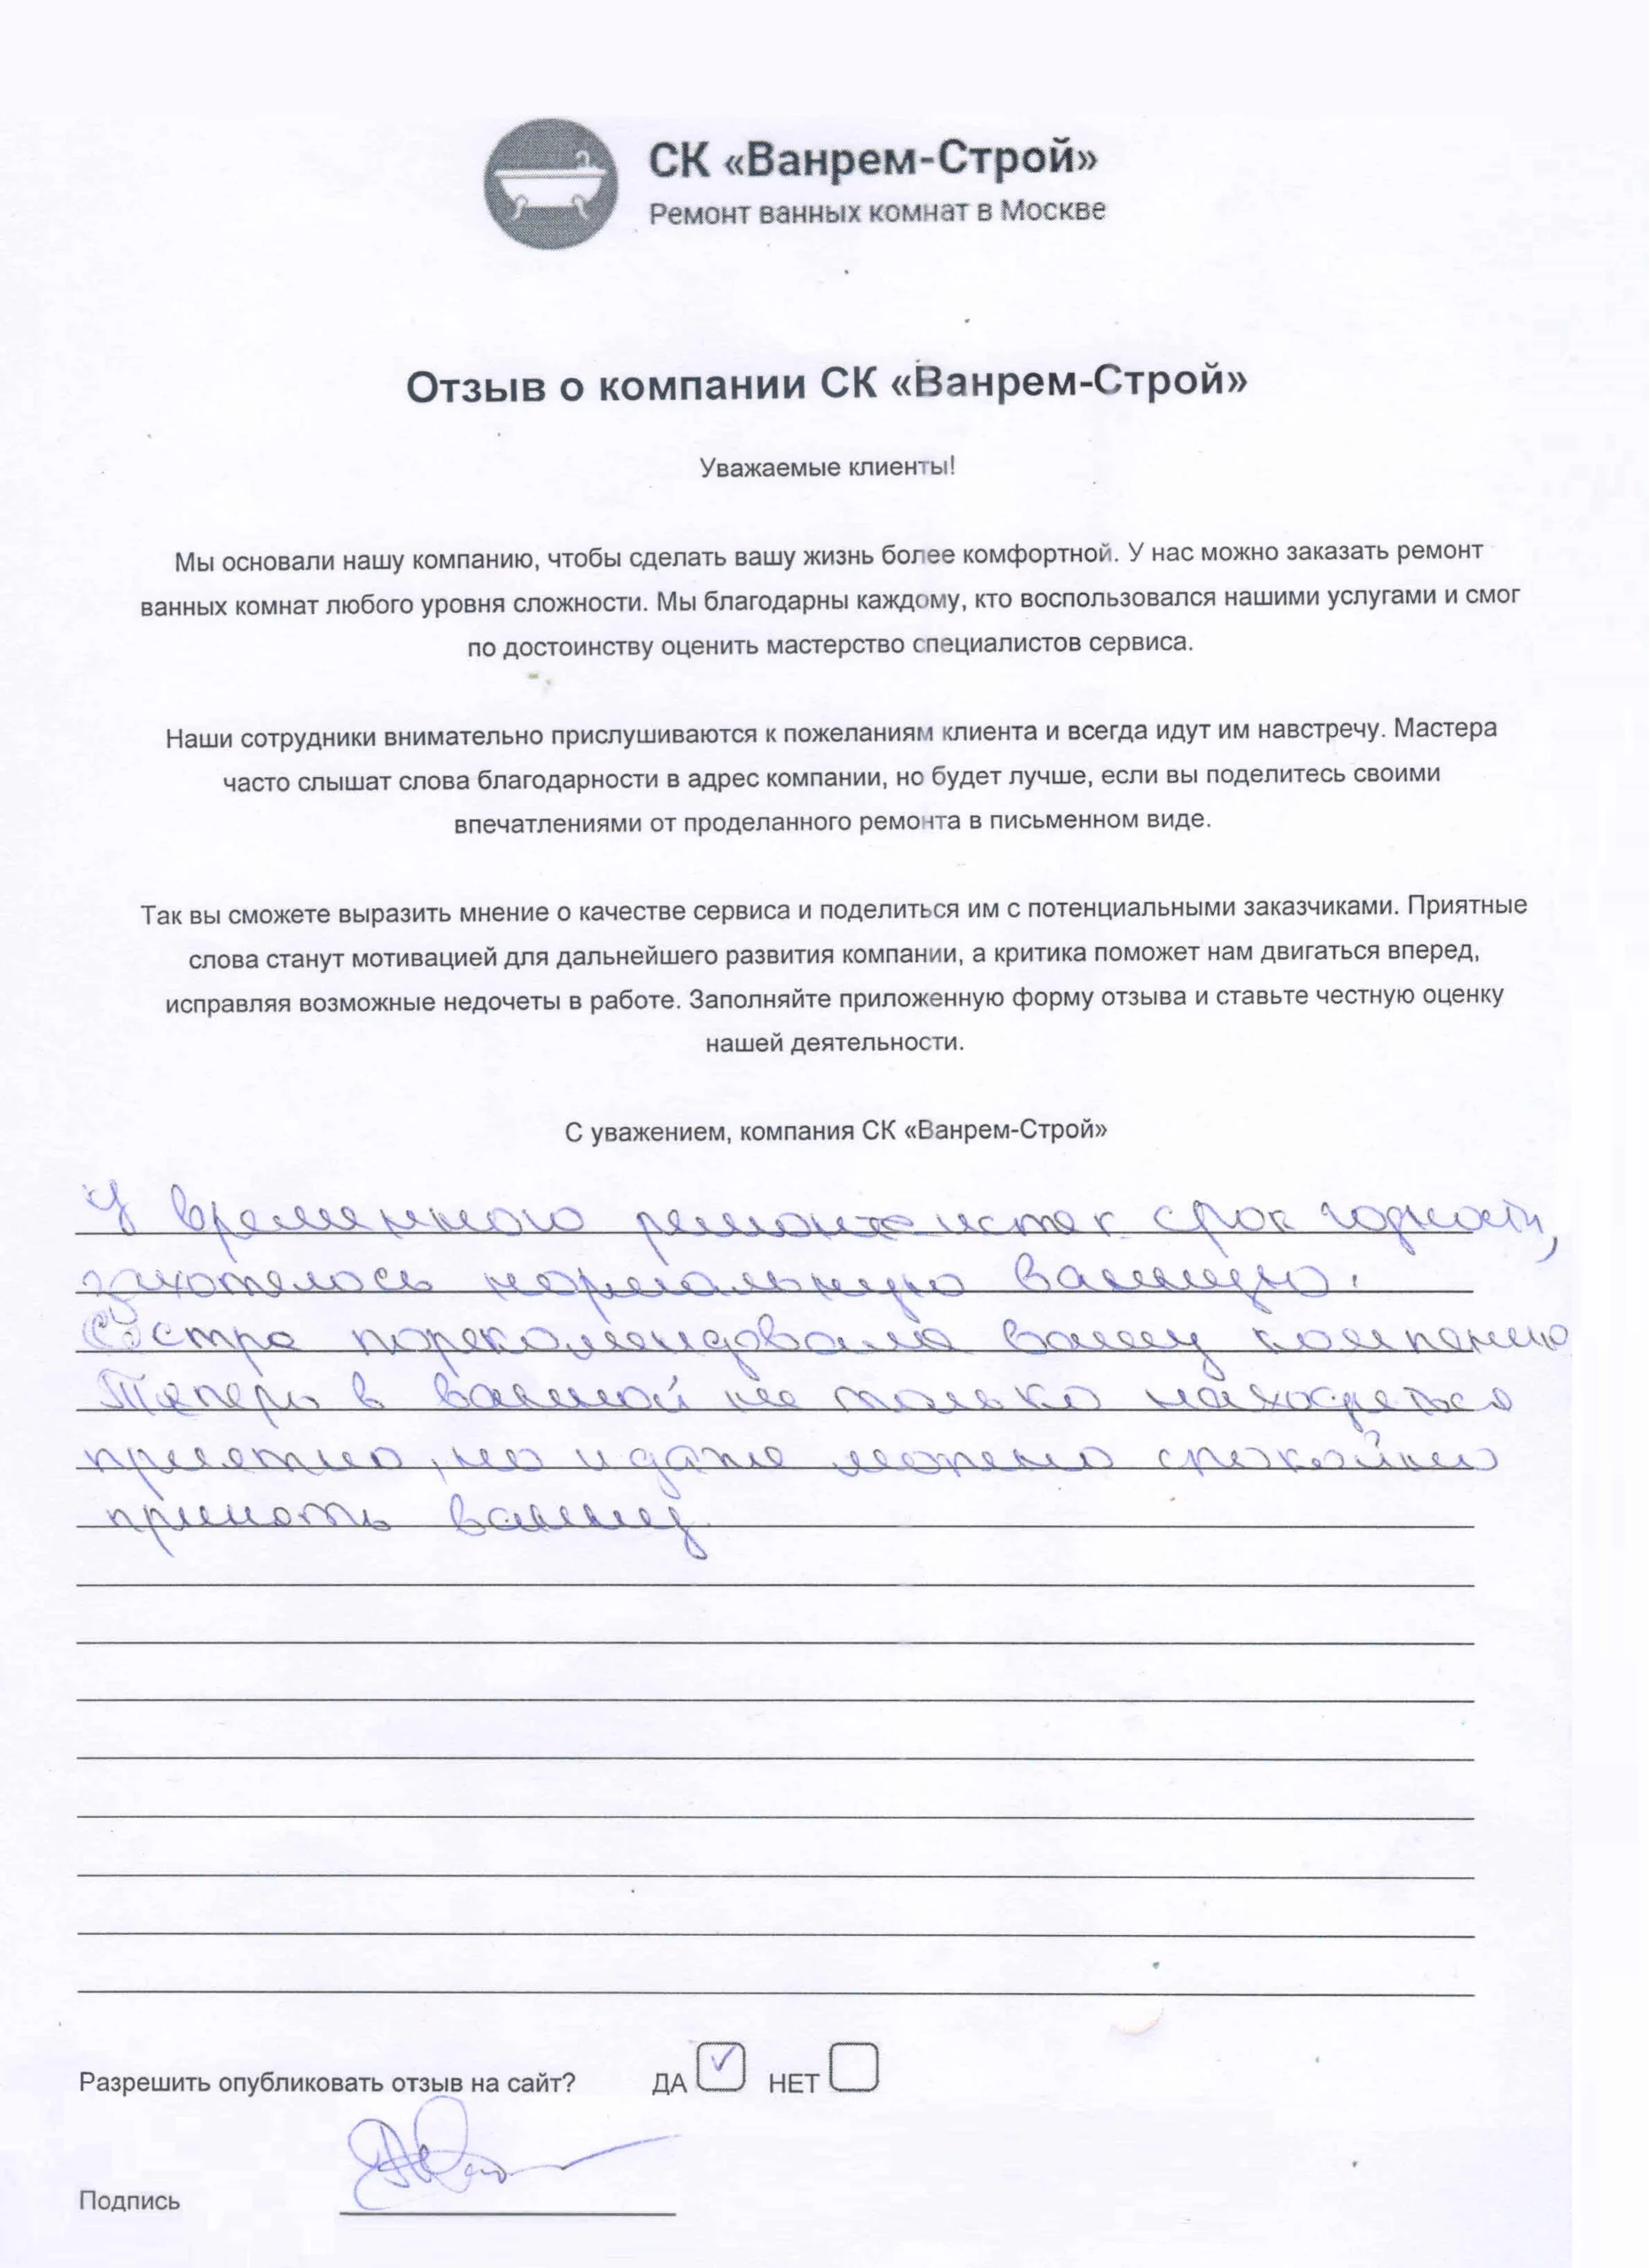 СК «Ванрем-Строй»
Ремонт ванных комнат в Москве
Отзыв о компании СК «Ванрем-Строй»
Уважаемые клиенты!
Мы основали нашу компанию, чтобы сделать вашу жизнь более комфортной. У нас можно заказать ремонт
ванных комнат любого уровня сложности. Мы благодарны каждому, кто воспользовался нашими услугами и смог
по достоинству оценить мастерство специалистов сервиса.
Наши сотрудники внимательно прислушиваются к пожеланиям клиента и всегда идут им навстречу. Мастера
часто слышат слова благодарности в адрес компании, но будет лучше, если вы поделитесь своими
впечатлениями от проделанного ремонта в письменном виде.
Так вы сможете выразить мнение о качестве сервиса и поделиться им с потенциальными заказчиками. Приятные
слова станут мотивацией для дальнейшего развития компании, а критика поможет нам двигаться вперед,
исправляя возможные недочеты в работе. Заполняйте приложенную форму отзыва и ставьте честную оценку
нашей деятельности.
С уважением, компания СК «Ванрем-Строй»
У временного ремонта истек срок годности,
захотелось нормальную ванную.
Сестра порекомендовала вашу компанию
Теперь в ванной не только находиться
приятно, но и даже можно спокойно
принять ванну.
Разрешить опубликовать отзыв на сайт? ДА НЕТ
Подпись